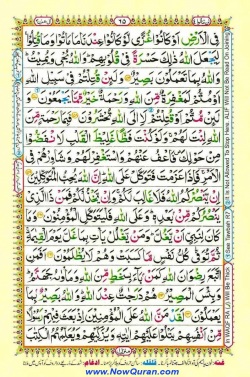 ٦٥
فِی الْاَرْضِ اَوْ كَانُوْا غُزًّی لَّوْ كَانُوْا عِنْدَنَا مَا مَاتُوْا وَمَا قُتِلُوْا
لِیَجْعَلَ اللّٰهُ ذٰلِكَ حَسْرَةً فِیْ قُلُوْبِهِمْ وَاللّٰهُ یُحْیٖ وَیُمِیْتُ
وَاللّٰهُ بِمَا تَعْمَلُوْنَ بَصِیْرٌ وَلَىِٕنْ قُتِلْتُمْ فِیْ سَبِیْلِ اللّٰهِ
اَوْ مُتُّمْ لَمَغْفِرَةٌ مِّنَ اللّٰهِ وَرَحْمَةٌ خَیْرٌ مِّمَّا یَجْمَعُوْنَ وَ
لَىِٕنْ مُّتُّمْ اَوْ قُتِلْتُمْ لَاِلَی اللّٰهِ تُحْشَرُوْنَ فَبِمَا رَحْمَةٍ مِّنَ
اللّٰهِ لِنْتَ لَهُمْ وَلَوْ كُنْتَ فَظًّا غَلِیْظَ الْقَلْبِ لَانْفَضُّوْا
مِنْ حَوْلِكَ فَاعْفُ عَنْهُمْ وَاسْتَغْفِرْ لَهُمْ وَشَاوِرْهُمْ فِی
الْاَمْرِ فَاِذَا عَزَمْتَ فَتَوَكَّلْ عَلَی اللّٰهِ اِنَّ اللّٰهَ یُحِبُّ الْمُتَوَكِّلِیْنَ
اِنْ یَّنْصُرْكُمُ اللّٰهُ فَلَا غَالِبَ لَكُمْ وَاِنْ یَّخْذُلْكُمْ فَمَنْ ذَا الَّذِیْ
یَنْصُرُكُمْ مِّنْ بَعْدِهٖ وَعَلَی اللّٰهِ فَلْیَتَوَكَّلِ الْمُؤْمِنُوْنَ وَمَا
كَانَ لِنَبِیٍّ اَنْ یَّغُلَّ وَمَنْ یَّغْلُلْ یَاْتِ بِمَا غَلَّ یَوْمَ الْقِیٰمَةِ
ثُمَّ تُوَفّٰی كُلُّ نَفْسٍ مَّا كَسَبَتْ وَهُمْ لَا یُظْلَمُوْنَ اَفَمَنِ
اتَّبَعَ رِضْوَانَ اللّٰهِ كَمَنْ بَآءَ بِسَخَطٍ مِّنَ اللّٰهِ وَمَاْوٰىهُ جَهَنَّمُ
وَبِئْسَ الْمَصِیْرُ هُمْ دَرَجٰتٌ عِنْدَ اللّٰهِ وَاللّٰهُ بَصِیْرٌ بِمَا
یَعْمَلُوْنَ لَقَدْ مَنَّ اللّٰهُ عَلَی الْمُؤْمِنِیْنَ اِذْ بَعَثَ فِیْهِمْ رَسُوْلًا
مِّنْ اَنْفُسِهِمْ یَتْلُوْا عَلَیْهِمْ اٰیٰتِهٖ وَیُزَكِّیْهِمْ وَیُعَلِّمُهُمُ الْكِتٰبَ
www.NowQuran.com